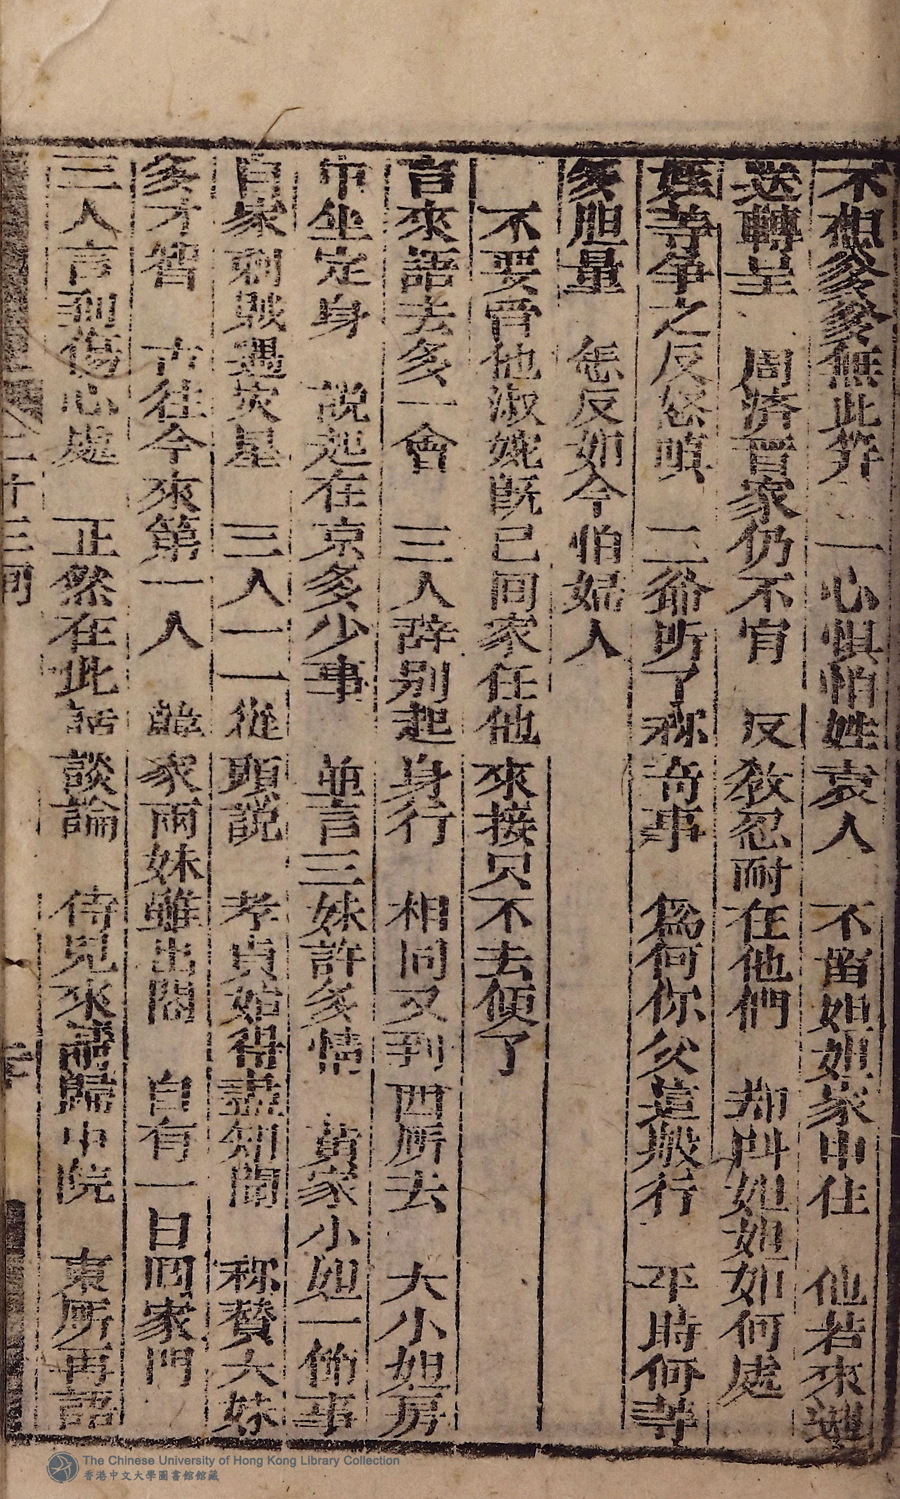 不想爹爹無此筭　一心惧怕姓袁人　不畱妲妲家中住　他若來迎
送轉呈　周濟晋家仍不肎　反敎忍耐在他們　却呌妲妲如何處
姪等争之反怒嗔　二爺听了称竒事　爲何你父這般行　平時何等
多胆量　怎反如今怕婦人
不要管他淑婉既已囘家任他來接只不去便了
言來語去多一會　三人辞别起身行　相同又到西所去　大小妲房
中坐定身　説起在京多少事　並言三妹許多情　黄家小妲一備事
自家刺賊遇灾星　三人一一從頭説　孝貞姑得盡知聞　称賛六妹
多才智　古往今來第一人　家兩妹雖出閣　自有一日囘家門
三人言到傷心處　正然在此話談論　侍兒來請歸中院　東所再語
二十三囘
The Chinese University of Hong Kong Library Collection
香港中文大學圖書館館藏